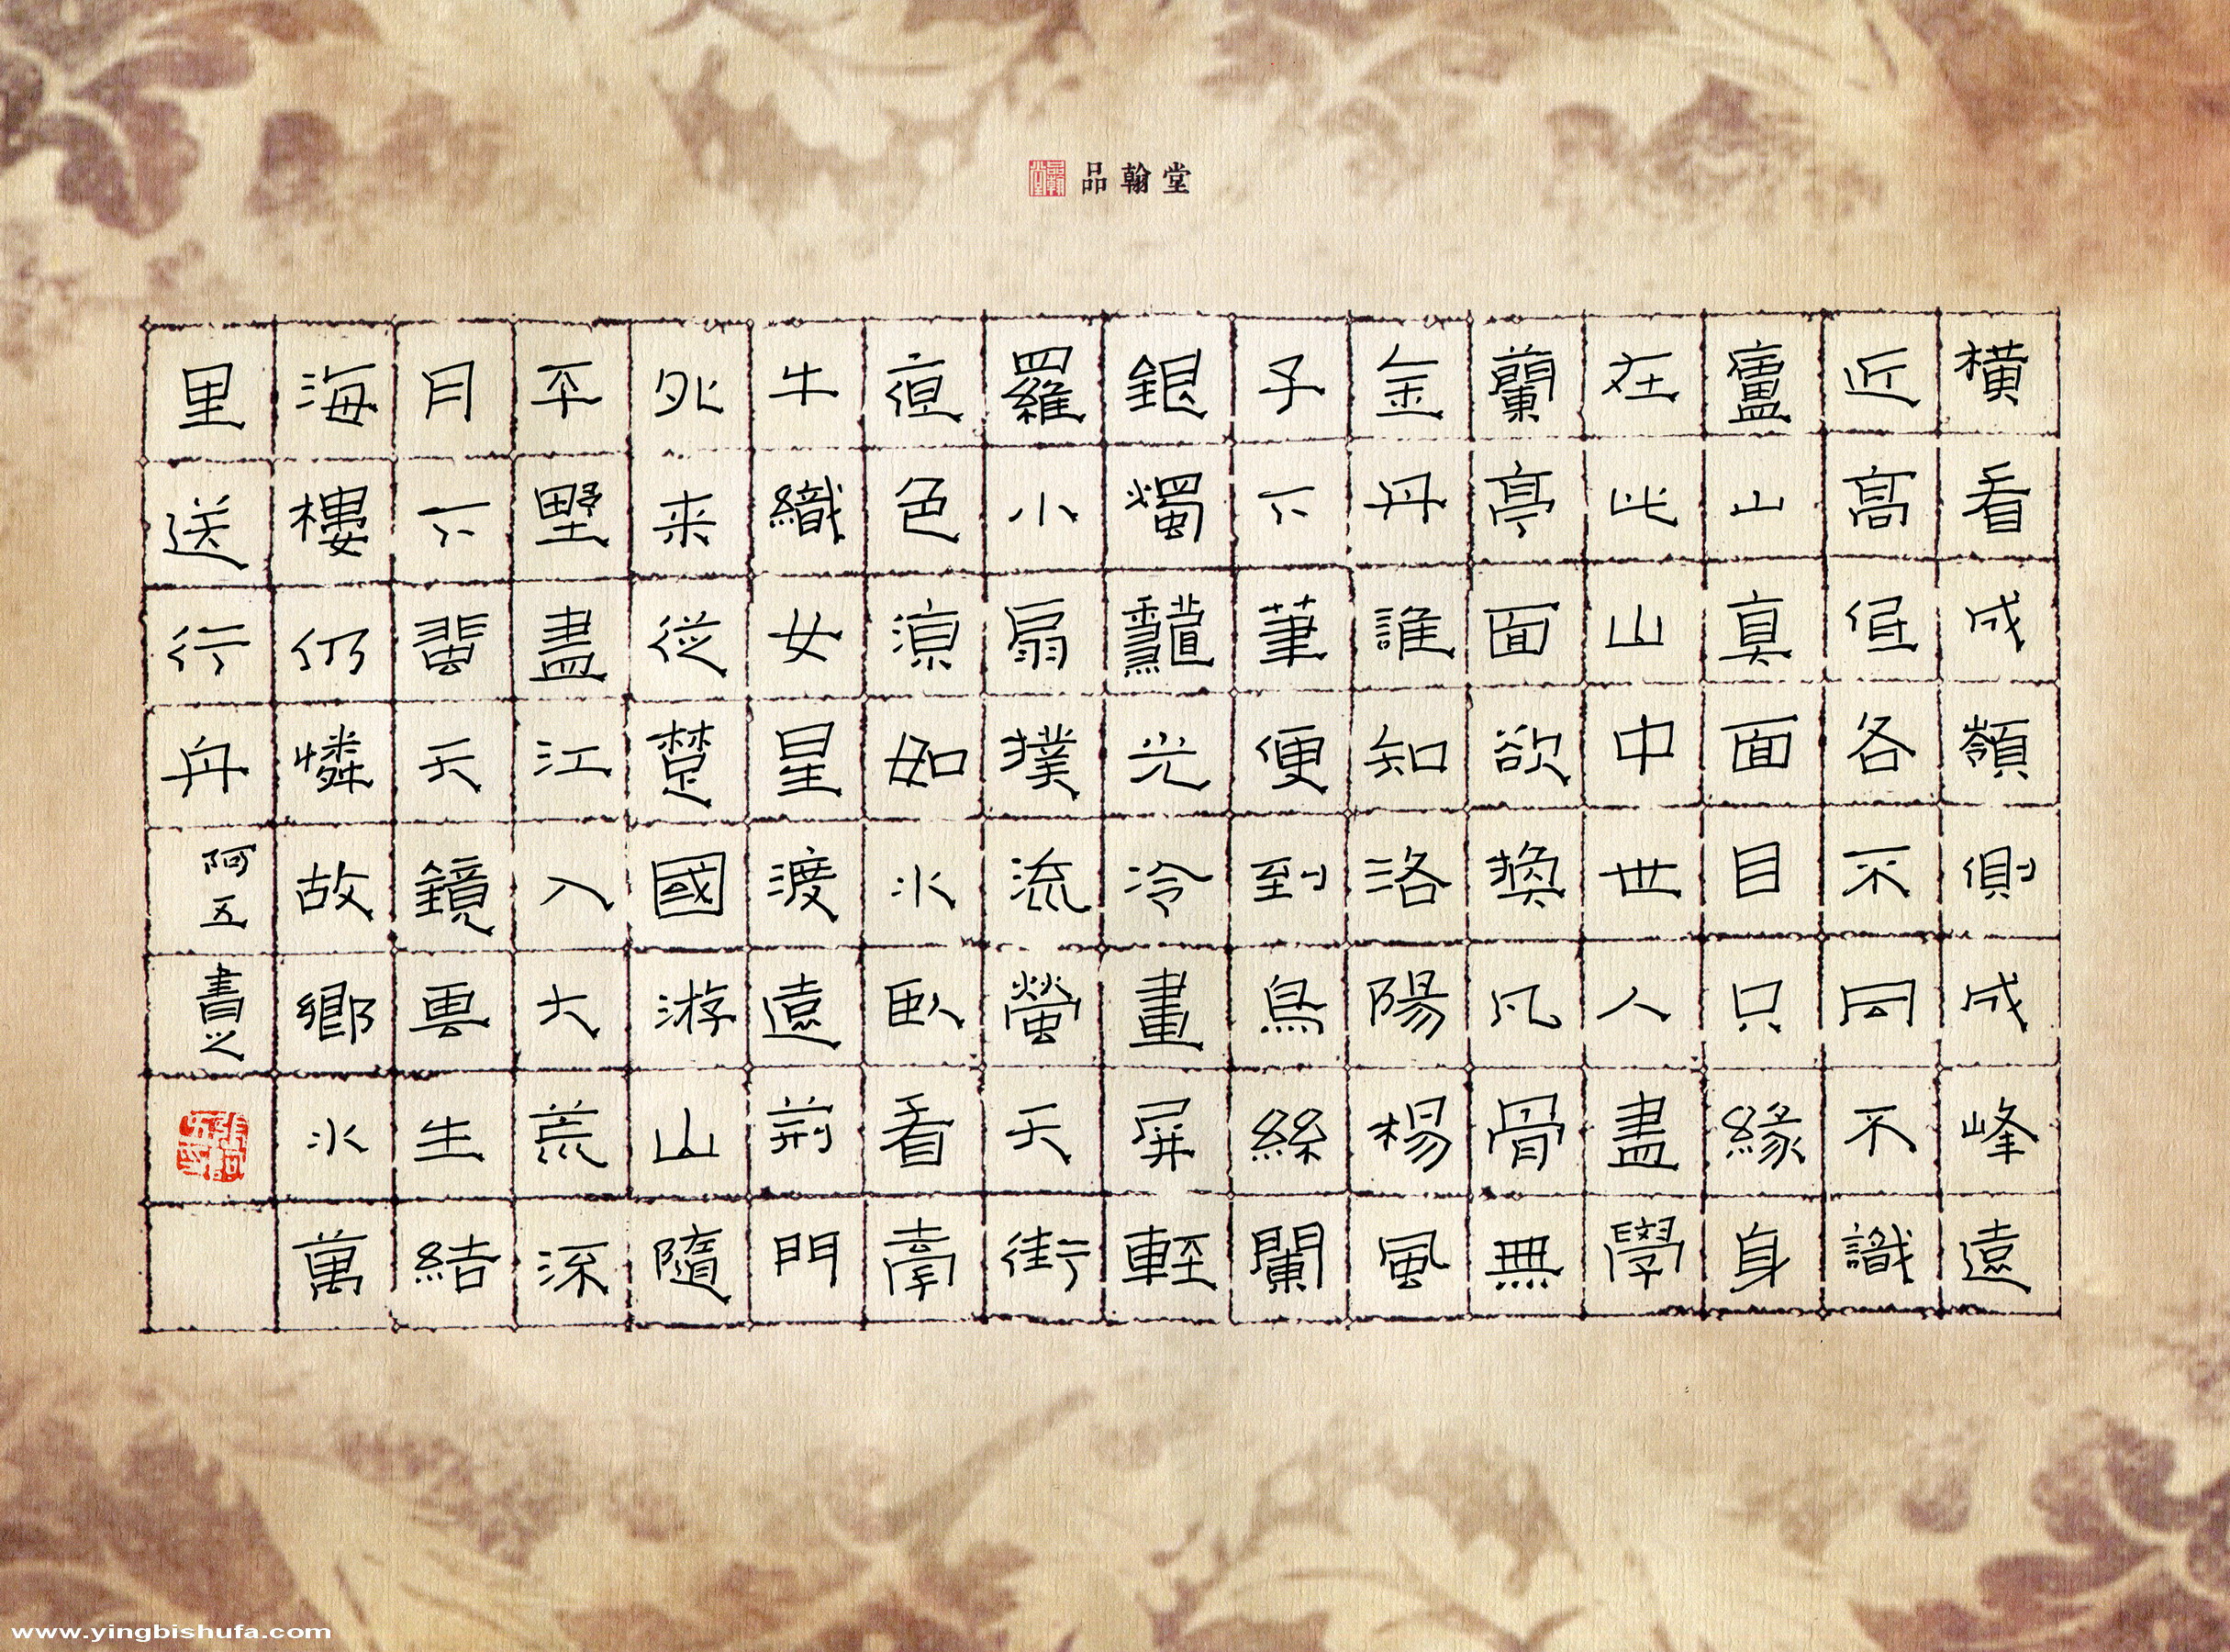 品翰堂
橫看成嶺側成峰遠
近高低各不同不識
廬山真面目只緣身
在此山中世人盡學
蘭亭面欲換凡骨無
金丹誰知洛陽楊風
子下筆便到烏絲闌
銀燭秋光冷畫屏輕
羅小扇撲流螢天街
夜色涼如水臥看牽
牛織女星渡遠荊門
外来從楚國游山隨
平野盡江入大荒流
月下飛天鏡雲生結
海樓仍憐故鄉水萬
里送行舟 阿五書之
www.yingbishufa.com